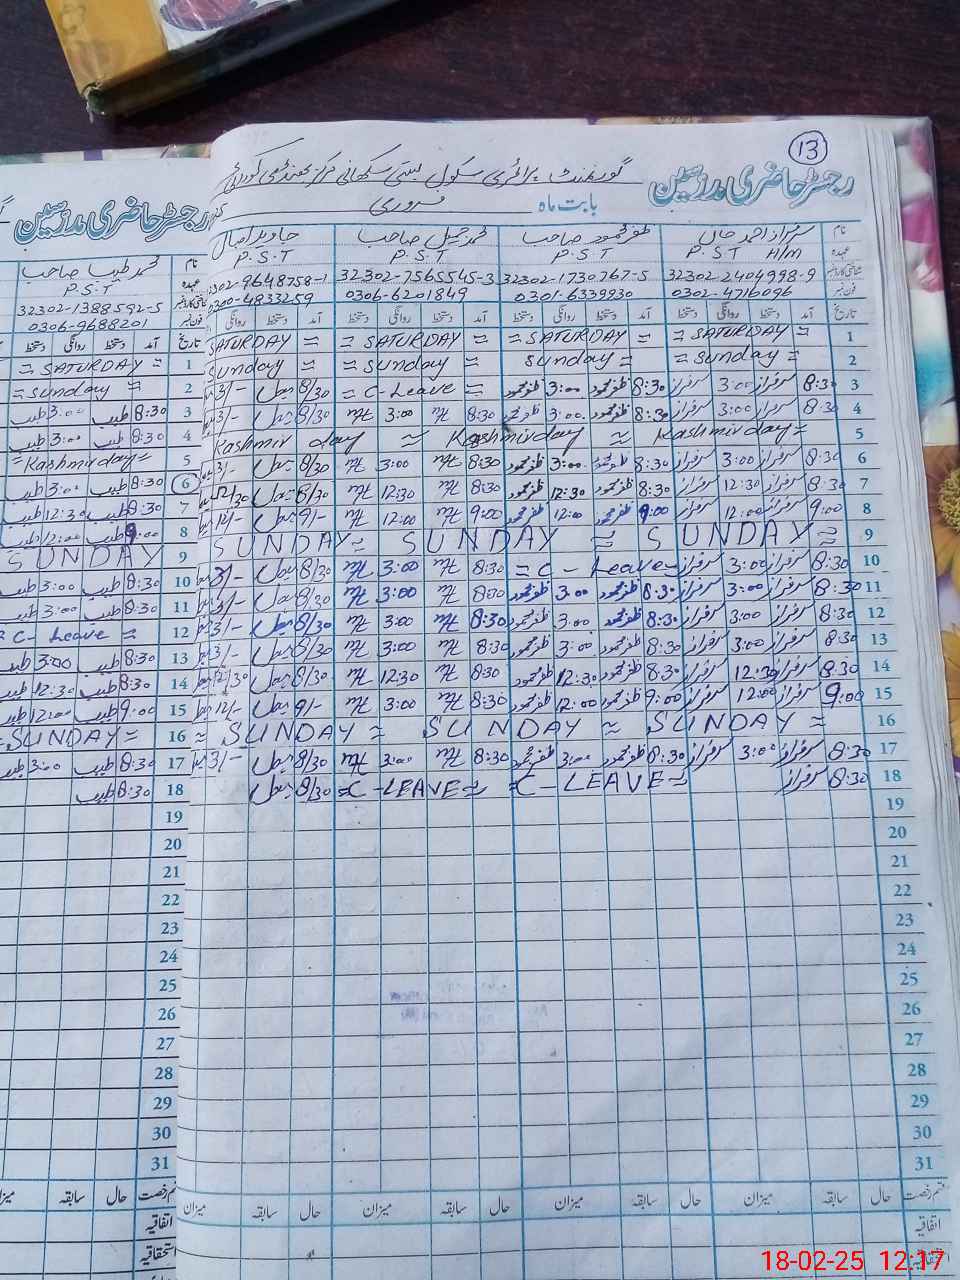 13
رجسٹر حاضری مدرسین گورنمنٹ پرائمری سکول بستی سکھانی مرکز
بابت ماہ فروری
نام سرفراز احمد خان ظفر محمود صاحب محمد جمیل صاحب جاوید اقبال
عہدہ P.S.T H/M P.S.T P.S.T P.S.T
شناختی کارڈ نمبر 32302-2404998-9 32302-1730767-5 32302-7565545-3 1302-9648758-1
فون نمبر 0302-4716096 0301-6339930 0306-6201849 0300-4833259
تاریخ آمد دستخط روانگی دستخط آمد دستخط روانگی دستخط آمد دستخط روانگی دستخط آمد دستخط روانگی
1 = SATURDAY = = SATURDAY = = SATURDAY = SATURDAY =
2 = sunday = sunday = = sunday = sunday =
3 8:30 سرفراز 3:00 سرفراز 8:30 ظفر محمود 3:00 ظفر محمود = C-Leave = 8/30 3/-
4 8:30 سرفراز 3:00 سرفراز 8:30 ظفر محمود 3:00 ظفر محمود 8:30 3:00 8/30 3/-
5 Kashmir day = Kashmir day = Kashmir day
6 8:30 سرفراز 3:00 سرفراز 8:30 ظفر محمود 3:00 ظفر محمود 8:30 3:00 8/30 3/-
7 8:30 سرفراز 12:30 سرفراز 8:30 ظفر محمود 12:30 ظفر محمود 8:30 12:30 8/30 12/30
8 9:00 سرفراز 12:00 سرفراز 9:00 ظفر محمود 12:00 ظفر محمود 9:00 12:00 9/- 12/-
9 SUNDAY = SUNDAY = SUNDAY
10 8:30 سرفراز 3:00 سرفراز = C-Leave 8:30 3:00 8/30 3/-
11 8:30 سرفراز 3:00 سرفراز 8:30 ظفر محمود 3:00 ظفر محمود 8:00 3:00 8/30 3/-
12 8:30 سرفراز 3:00 سرفراز 8:30 ظفر محمود 3:00 ظفر محمود 8:30 3:00 8/30 3/-
13 8:30 سرفراز 3:00 سرفراز 8:30 ظفر محمود 3:00 ظفر محمود 8:30 3:00 8/30 3/-
14 8:30 سرفراز 12:30 سرفراز 8:30 ظفر محمود 12:30 ظفر محمود 8:30 12:30 8/30 12/30
15 9:00 سرفراز 12:00 سرفراز 9:00 ظفر محمود 12:00 ظفر محمود 8:30 3:00 9/- 12/-
16 SUNDAY = SUNDAY = SUNDAY =
17 8:30 سرفراز 3:00 سرفراز 8:30 ظفر محمود 3:00 ظفر محمود 8:30 3:00 8/30 3/-
18 8:30 سرفراز = C-LEAVE = = C-LEAVE = 8/30
19
20
21
22
23
24
25
26
27
28
29
30
31
قسم رخصت حال سابقہ میزان حال سابقہ میزان حال سابقہ میزان حال سابقہ میزان
اتفاقیہ
رجسٹر حاضری مدرسین
نام محمد طیب صاحب
عہدہ P.S.T
شناختی کارڈ نمبر 32302-1388592-5
فون نمبر 0306-9688201
تاریخ آمد دستخط روانگی دستخط
1 = SATURDAY =
2 = sunday =
3 8:30 طیب 3:00 طیب
4 8:30 طیب 3:00 طیب
5 = Kashmir day =
6 8:30 طیب 3:00 طیب
7 8:30 طیب 12:30 طیب
8 9:00 طیب 12:00 طیب
9 SUNDAY
10 8:30 طیب 3:00 طیب
11 8:30 طیب 3:00 طیب
12 C-Leave =
13 8:30 طیب 3:00 طیب
14 8:30 طیب 12:30 طیب
15 9:00 طیب 12:00 طیب
16 = SUNDAY =
17 8:30 طیب 3:00 طیب
18 8:30 طیب
19
20
21
22
23
24
25
26
27
28
29
30
31
قسم رخصت حال سابقہ میزان
اتفاقیہ
استحقاقیہ
18-02-25 12:17